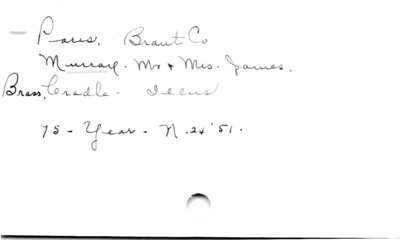 — Paris. Brant Co
Murray. Mr & Mrs. James.
Brass Cradle. Illus
75 - Year - N. 24 '51.